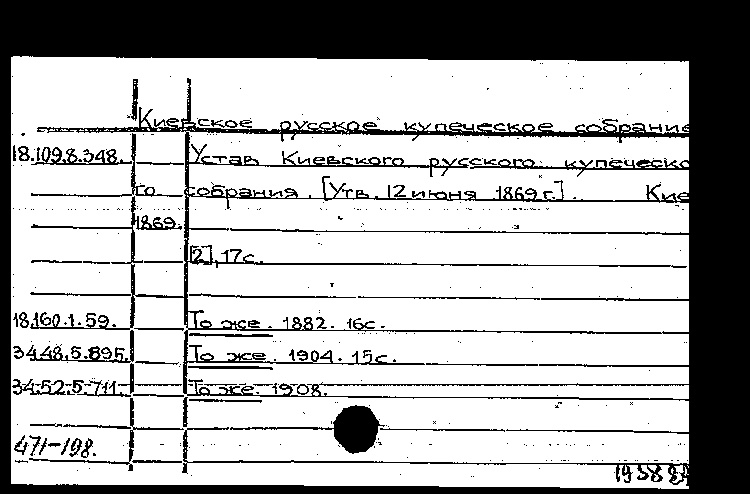 Киевское русское купеческое собрание
18.109.8.348. Устав Киевского русского купеческо
го собрания. [Утв. 12 июня 1869 г.]. Кие
1869.
[2], 17с.
18.160.1.59. То же. 1882. 16с.
34.48.5.895. То же. 1904. 15с.
34.52.5.711. То же. 1908.
471-198.